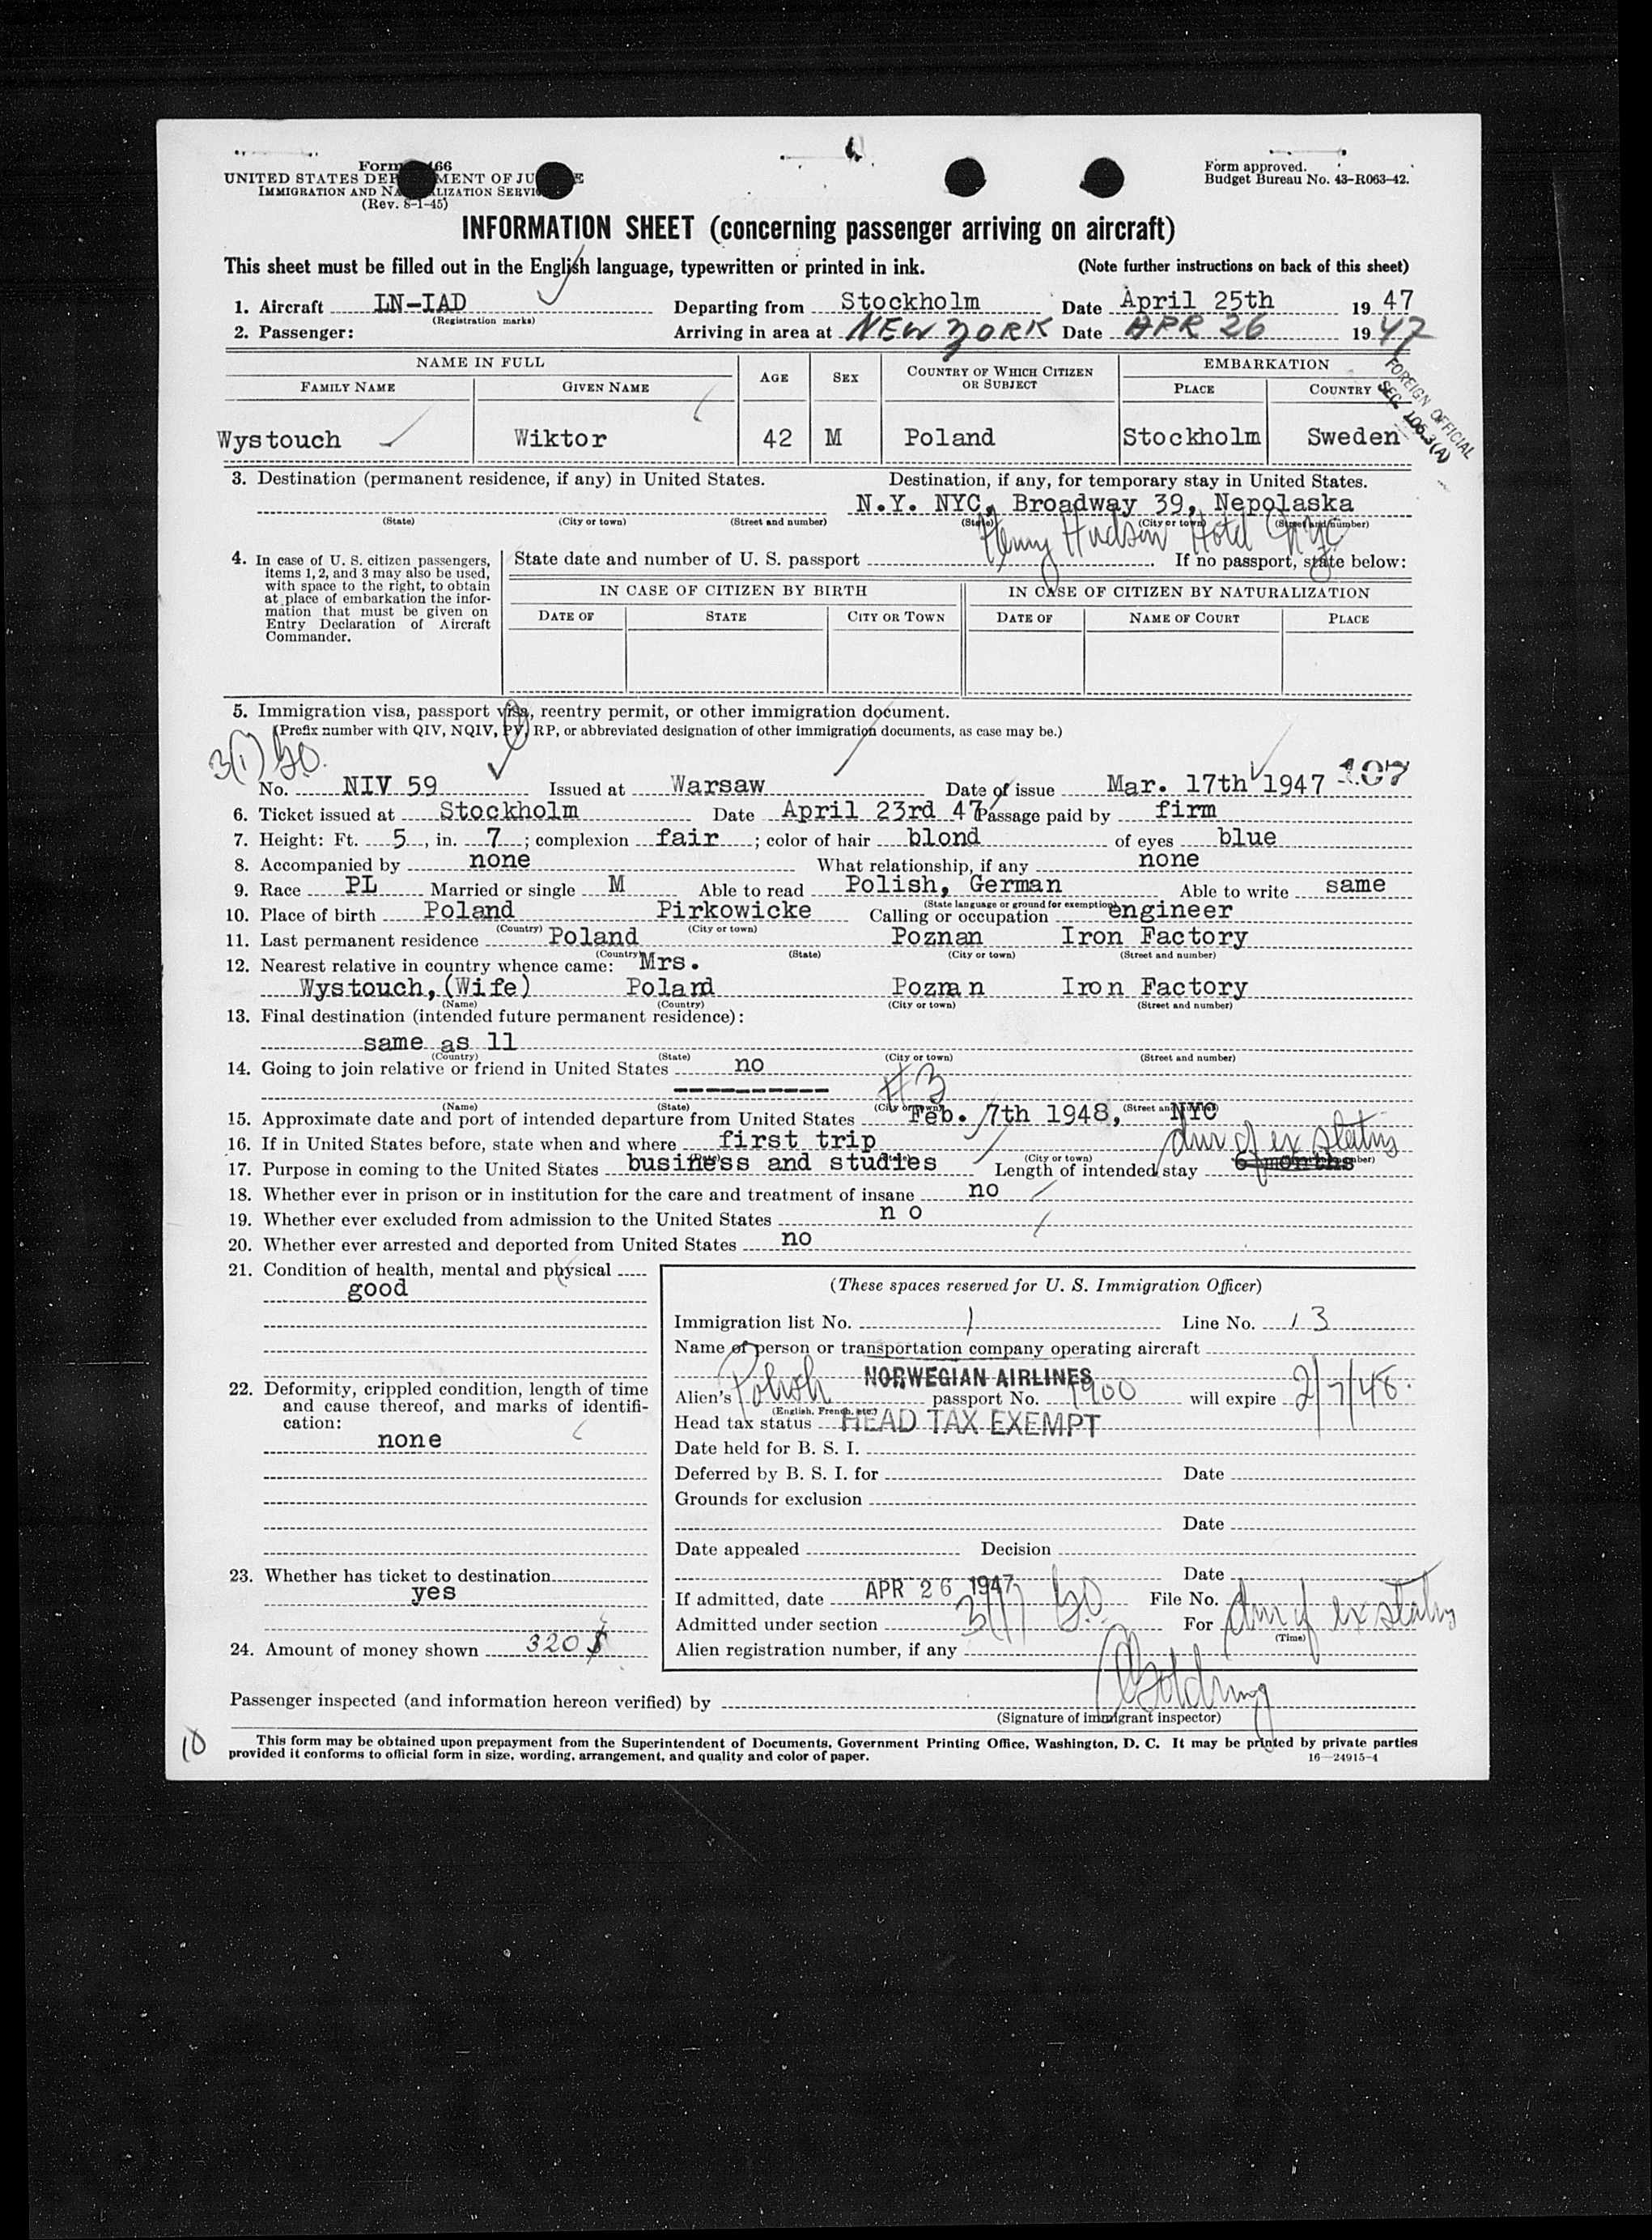 Form 466
UNITED STATES DEP MENT OF JU E
IMMIGRATION AND NA LIZATION SERVI
(Rev. 8-1-45)
Form approved.
Budget Bureau No. 43-R063-42.
INFORMATION SHEET (concerning passenger arriving on aircraft)
This sheet must be filled out in the English language, typewritten or printed in ink. (Note further instructions on back of this sheet)
1. Aircraft LN-IAD Departing from Stockholm Date April 25th 19 47
(Registration marks)
2. Passenger: Arriving in area at NEW YORK Date APR 26 19 47
FOREIGN OFFICIAL
SEC. 105.3(A)
NAME IN FULL AGE SEX COUNTRY OF WHICH CITIZEN OR SUBJECT EMBARKATION
FAMILY NAME GIVEN NAME PLACE COUNTRY
Wystouch Wiktor 42 M Poland Stockholm Sweden
3. Destination (permanent residence, if any) in United States. Destination, if any, for temporary stay in United States.
N.Y. NYC, Broadway 39, Nepolaska
(State) (City or town) (Street and number) (State) (City or town) (Street and number)
Henry Hudson Hotel NYC
4. In case of U. S. citizen passengers, items 1, 2, and 3 may also be used, with space to the right, to obtain at place of embarkation the information that must be given on Entry Declaration of Aircraft Commander.
State date and number of U. S. passport If no passport, state below:
IN CASE OF CITIZEN BY BIRTH IN CASE OF CITIZEN BY NATURALIZATION
DATE OF STATE CITY OR TOWN DATE OF NAME OF COURT PLACE
5. Immigration visa, passport visa, reentry permit, or other immigration document.
(Prefix number with QIV, NQIV, PV, RP, or abbreviated designation of other immigration documents, as case may be.)
3(1)
No. NIV 59 Issued at Warsaw Date of issue Mar. 17th 1947 107
6. Ticket issued at Stockholm Date April 23rd 47 Passage paid by firm
7. Height: Ft. 5, in. 7; complexion fair; color of hair blond of eyes blue
8. Accompanied by none What relationship, if any none
9. Race PL Married or single M Able to read Polish, German Able to write same
(State language or ground for exemption)
10. Place of birth Poland Pirkowicke Calling or occupation engineer
(Country) (City or town)
11. Last permanent residence Poland Poznan Iron Factory
(Country) (State) (City or town) (Street and number)
12. Nearest relative in country whence came: Mrs.
Wystouch, (Wife) Poland Poznan Iron Factory
(Name) (Country) (City or town) (Street and number)
13. Final destination (intended future permanent residence):
same as 11
(Country) (State) (City or town) (Street and number)
14. Going to join relative or friend in United States no
----------
#3
(Name) (State) (City or town) (Street and number)
15. Approximate date and port of intended departure from United States Feb. 7th 1948, NYC
16. If in United States before, state when and where first trip
dur of ex status
(Date) (State) (City or town) (Street and number)
17. Purpose in coming to the United States business and studies Length of intended stay 6 months
18. Whether ever in prison or in institution for the care and treatment of insane no
19. Whether ever excluded from admission to the United States n o
20. Whether ever arrested and deported from United States no
21. Condition of health, mental and physical
good
22. Deformity, crippled condition, length of time and cause thereof, and marks of identification:
none
23. Whether has ticket to destination
yes
24. Amount of money shown 320 $
(These spaces reserved for U. S. Immigration Officer)
Immigration list No. 1 Line No. 13
Name of person or transportation company operating aircraft
NORWEGIAN AIRLINES
Alien's Polish passport No. 1900 will expire 2/7/48.
(English, French, etc.)
Head tax status HEAD TAX EXEMPT
Date held for B. S. I.
Deferred by B. S. I. for Date
Grounds for exclusion
Date
Date appealed Decision
Date
If admitted, date APR 26 1947 File No.
Admitted under section 3(1) For dur of ex status
(Time)
Alien registration number, if any
Passenger inspected (and information hereon verified) by
(Signature of immigrant inspector)
10
This form may be obtained upon prepayment from the Superintendent of Documents, Government Printing Office, Washington, D. C. It may be printed by private parties
provided it conforms to official form in size, wording, arrangement, and quality and color of paper.
16—24915-4